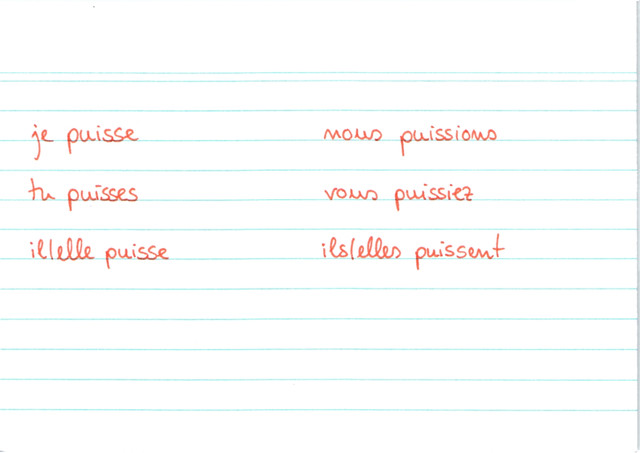 je puisse nous puissions
tu puisses vous puissiez
il/elle puisse ils/elles puissent